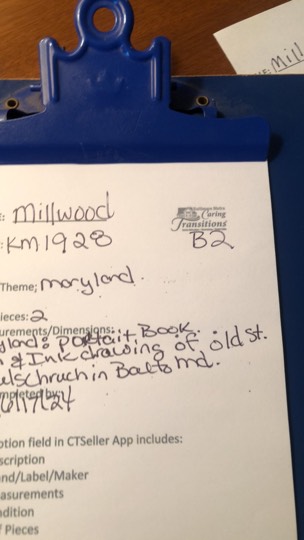 : Mill
: Millwood
Baltimore Metro
Caring
Transitions
: KM1928
B2
Theme; maryland.
ieces: 2
urements/Dimensions:
yland: portait Book.
& Ink drawing of old st.
ulschruch in Balto md.
mpleted by:
6/17/24
ption field in CTSeller App includes:
scription
nd/Label/Maker
asurements
dition
f Pieces